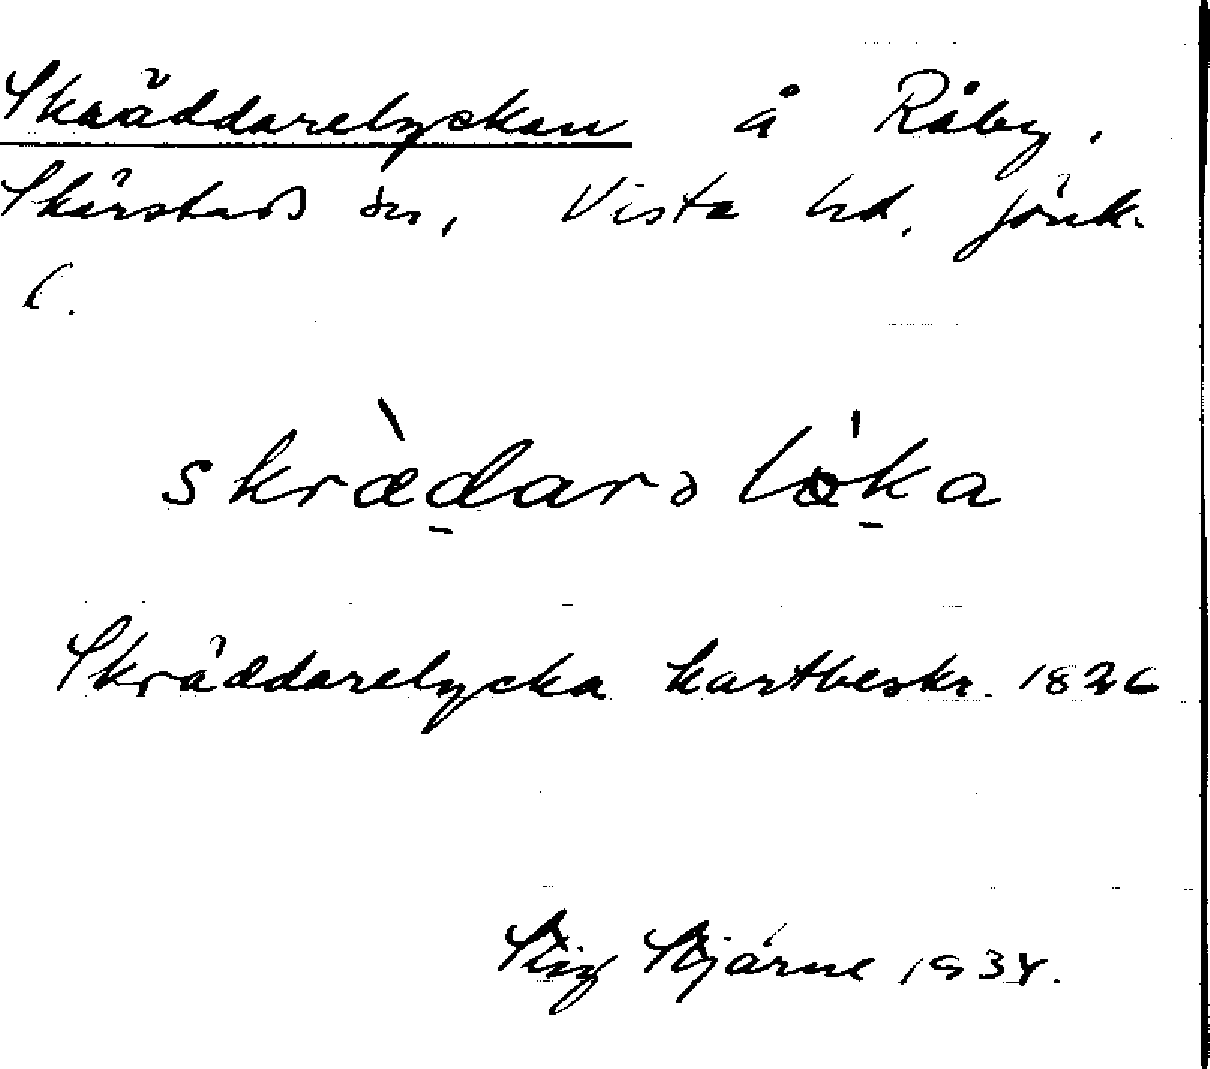 Skräddarelyckan å Råby.
Skärstads sn, Vista hd, Jönk.
l.
skrædarə löka
Skräddarelycka kartbeskr. 1826
Stig Stjärne 1934.